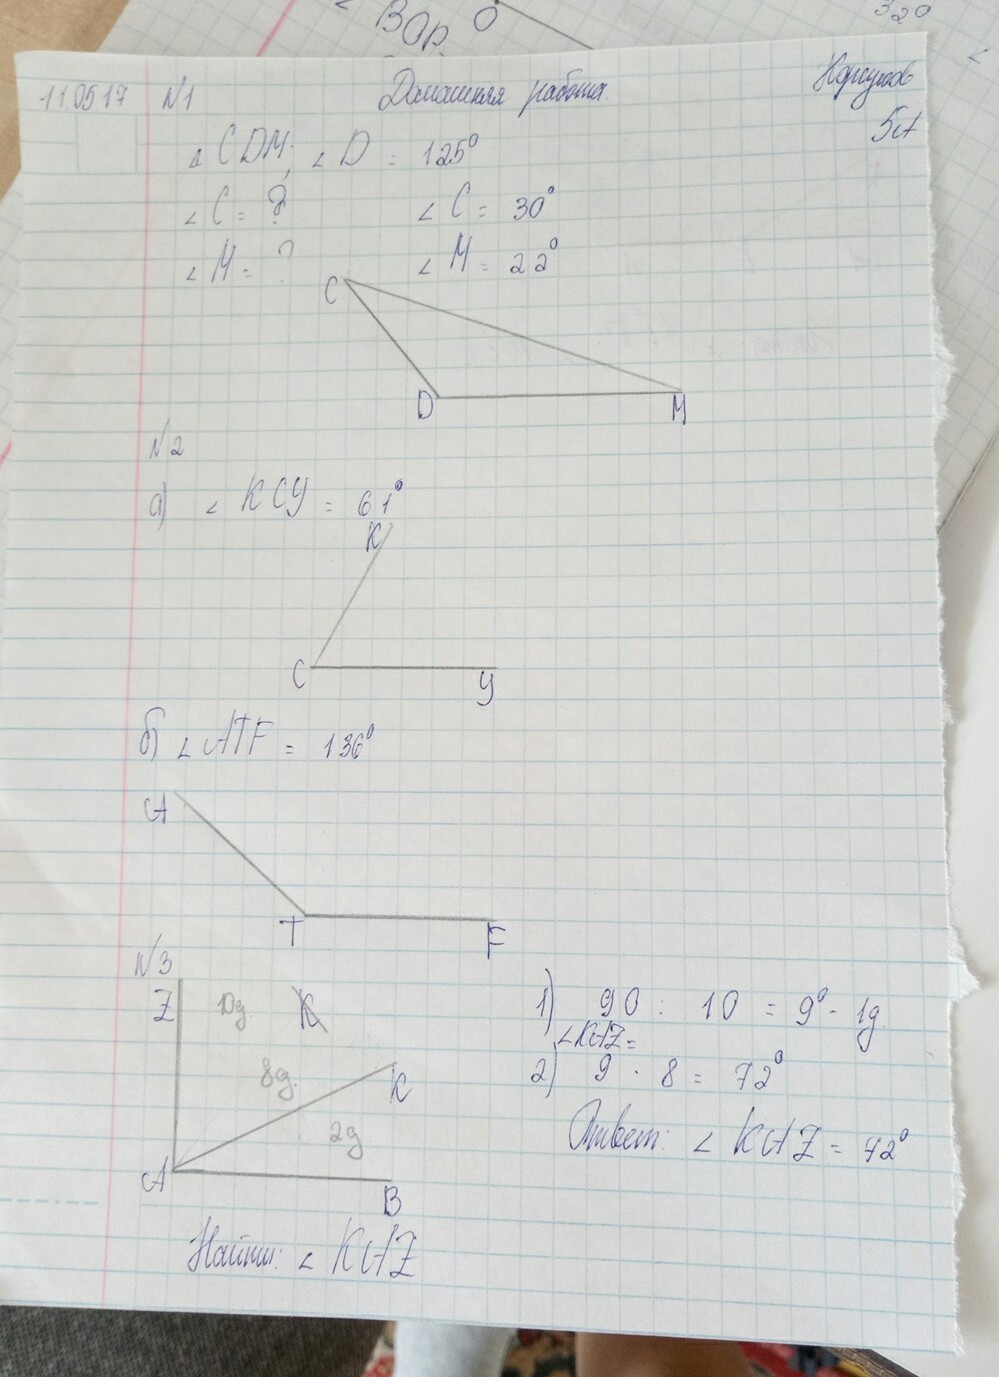 ВОР.
O
320
<
11.05.17 №1 Домашняя работа.
5А
△ CDM; ∠D = 125°
∠C = ? ∠C = 30°
∠M = ? ∠M = 22°
C
D M
№2
а) ∠KCY = 61°
K
C Y
б) ∠ATF = 136°
A
T F
№3
Z 10д. K
8д. K
2д
A B
1) 90 : 10 = 9° - 1д.
∠KAZ =
2) 9 · 8 = 72°
Ответ: ∠KAZ = 72°
Найти: ∠KAZ